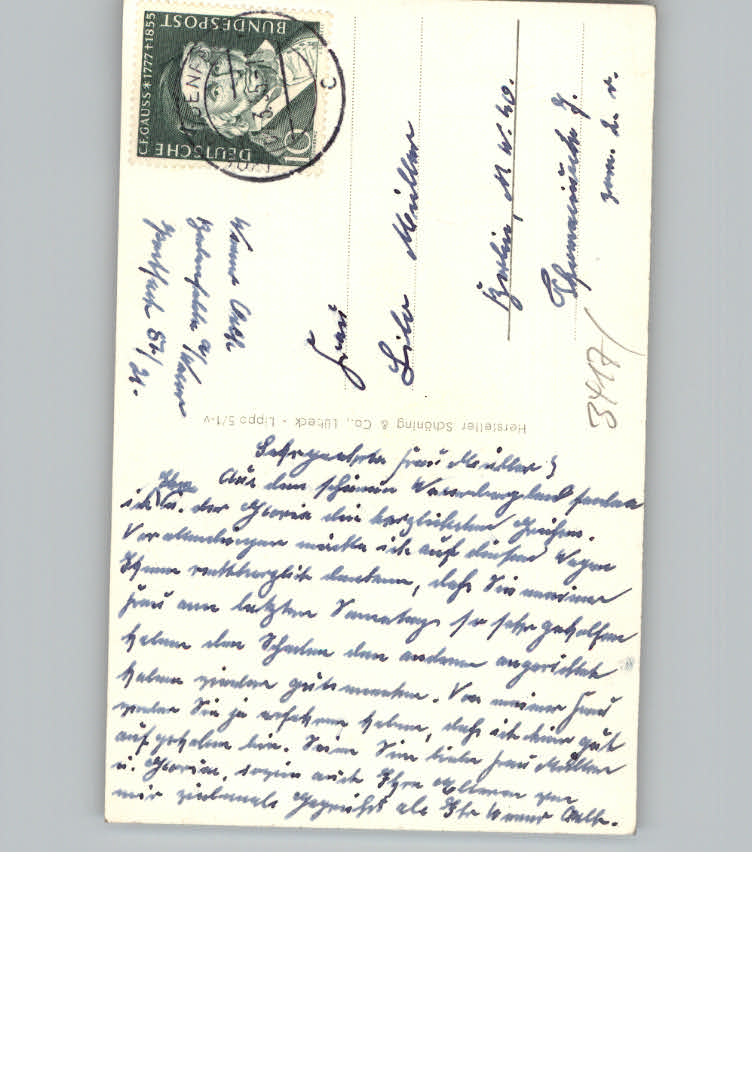 DEUTSCHE
BUNDESPOST
C.F.GAUSS * 1777 † 1855
10
C
Frau
Lilo Müller
Berlin, N W. 40.
Hersteller Schöning & Co., Lübeck - Lippo 5/1-v
3417/
Sehrgeehrte Frau Müller!
Aus dem schönen Weserbergland senden
ich Ihnen u. der Gloria die herzlichsten Grüßen.
Vor allen dingen möchte ich auf diesen Wegen
Ihnen recht herzlich danken, daß Sie meiner
Frau am letzten Samstag so sehr geholfen
haben den Schaden den andere angerichtet
haben wieder gutzumachen. Von meiner Frau
werden Sie ja erfahren haben, daß ich hier gut
aufgehoben bin. Seien Sie liebe Frau Müller
u. Gloria, sowie auch Ihre Eltern von
mir vielmals Gegrüßt als Ihr Werner